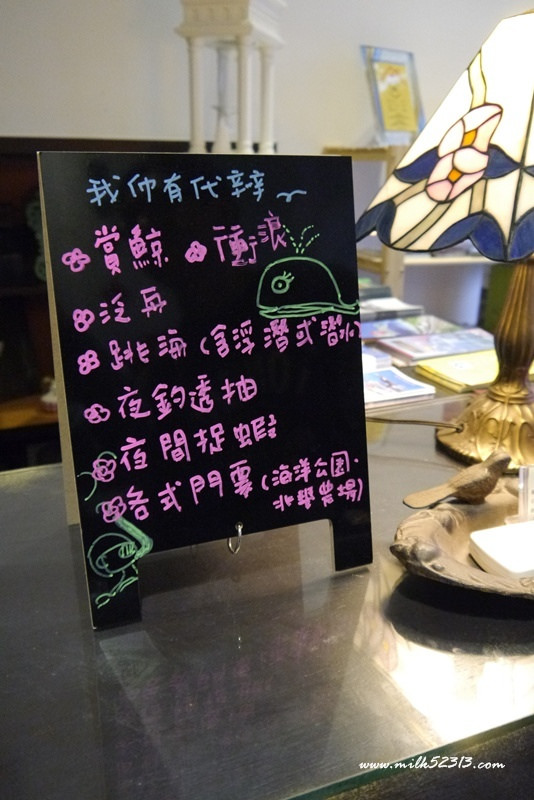 我們有代辦
賞鯨 衝浪
泛舟
跳海(含浮潛或潛水)
夜釣透抽
夜間捉蝦
各式門票(海洋公園.
北埔農場)
www.milk52313.com